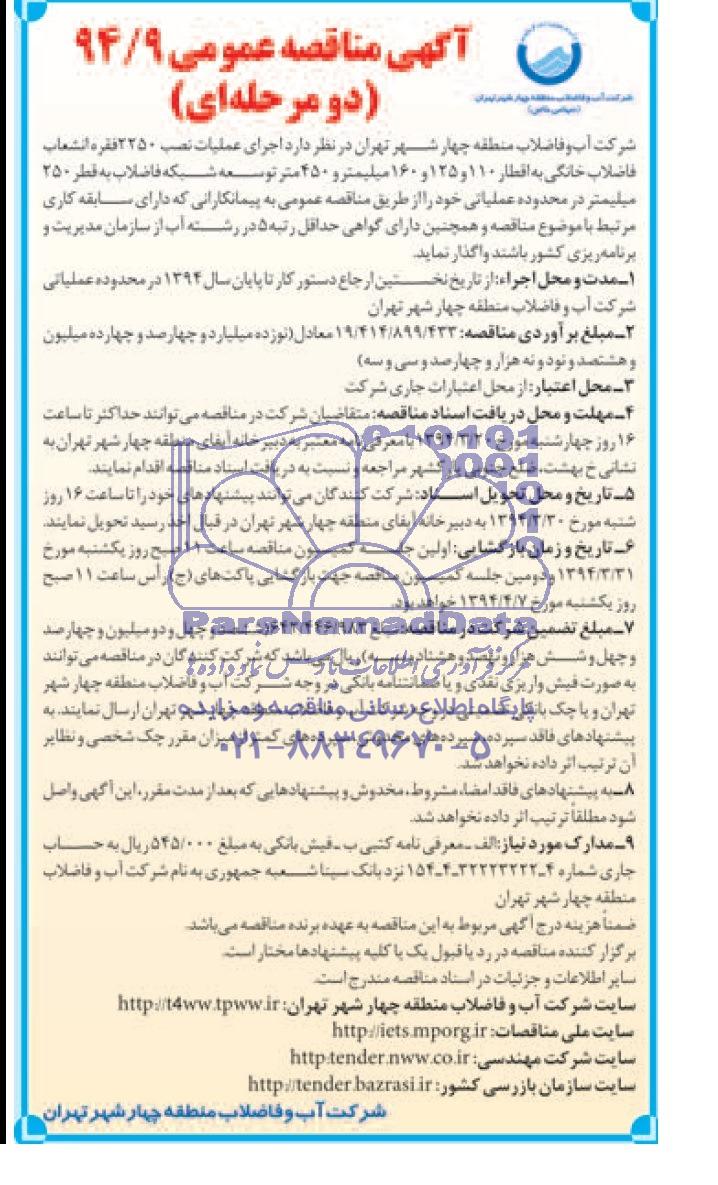 آگهی مناقصه عمومی ۹۴/۹
(دو مرحله‌ای)
شرکت آب و فاضلاب منطقه چهار شهر تهران
(سهامی خاص)
شرکت آب و فاضلاب منطقه چهار شهر تهران در نظر دارد اجرای عملیات نصب ۲۲۵۰ فقره انشعاب
فاضلاب خانگی به اقطار ۱۱۰ و ۱۲۵ و ۱۶۰ میلیمتر و ۴۵۰ متر توسعه شبکه فاضلاب به قطر ۲۵۰
میلیمتر در محدوده عملیاتی خود را از طریق مناقصه عمومی به پیمانکارانی که دارای سابقه کاری
مرتبط با موضوع مناقصه و همچنین دارای گواهی حداقل رتبه ۵ در رشته آب از سازمان مدیریت و
برنامه‌ریزی کشور باشند واگذار نماید.
۱ـ مدت و محل اجراء: از تاریخ نخستین ارجاع دستور کار تا پایان سال ۱۳۹۴ در محدوده عملیاتی
شرکت آب و فاضلاب منطقه چهار شهر تهران
۲ـ مبلغ برآوردی مناقصه: ۱۹/۴۱۴/۸۹۹/۴۳۳ معادل (نوزده میلیارد و چهارصد و چهارده میلیون
و هشتصد و نود و نه هزار و چهارصد و سی و سه)
۳ـ محل اعتبار: از محل اعتبارات جاری شرکت
۴ـ مهلت و محل دریافت اسناد مناقصه: متقاضیان شرکت در مناقصه می‌توانند حداکثر تا ساعت
۱۶ روز چهارشنبه مورخ ۱۳۹۴/۳/۲۰ با معرفی نامه معتبر به دبیرخانه آبفای منطقه چهار شهر تهران به
نشانی خ بهشت، ضلع جنوبی پارکشهر مراجعه و نسبت به دریافت اسناد مناقصه اقدام نمایند.
۵ـ تاریخ و محل تحویل اسناد: شرکت کنندگان می‌توانند پیشنهادهای خود را تا ساعت ۱۶ روز
شنبه مورخ ۱۳۹۴/۳/۳۰ به دبیرخانه آبفای منطقه چهار شهر تهران در قبال اخذ رسید تحویل نمایند.
۶ـ تاریخ و زمان بازگشایی: اولین جلسه کمیسیون مناقصه ساعت ۱۱ صبح روز یکشنبه مورخ
۱۳۹۴/۳/۳۱ و دومین جلسه کمیسیون مناقصه جهت بازگشایی پاکت‌های (ج) رأس ساعت ۱۱ صبح
روز یکشنبه مورخ ۱۳۹۴/۴/۷ خواهد بود.
ParsNamadData
۷ـ مبلغ تضمین شرکت در مناقصه: مبلغ ۶۴۲/۴۴۶/۹۸۳ (ششصد و چهل و دو میلیون و چهارصد
و چهل و شش هزار و نهصد و هشتاد و سه) ریال می‌باشد که شرکت کنندگان در مناقصه می‌توانند
مرکز فرآوری اطلاعات پارس نماد داده‌ها
به صورت فیش واریزی نقدی و یا ضمانتنامه بانکی در وجه شرکت آب و فاضلاب منطقه چهار شهر
تهران و یا چک بانکی آب و فاضلاب منطقه چهار شهر تهران ارسال نمایند. به
پایگاه اطلاع رسانی مناقصه و مزایده
پیشنهادهای فاقد سپرده، سپرده‌های مخدوش، سپرده‌های کمتر از میزان مقرر چک شخصی و نظایر
۰۲۱-۸۸۳۴۹۶۷۰-۵
آن ترتیب اثر داده نخواهد شد.
۸ـ به پیشنهادهای فاقد امضا، مشروط، مخدوش و پیشنهادهایی که بعد از مدت مقرر، این آگهی واصل
شود مطلقاً ترتیب اثر داده نخواهد شد.
۹ـ مدارک مورد نیاز: الف ـ معرفی نامه کتبی ب ـ فیش بانکی به مبلغ ۵۴۵/۰۰۰ ریال به حساب
جاری شماره ۱۵۴-۴-۳۲۲۲۳۲۲۲-۴ نزد بانک سینا شعبه جمهوری به نام شرکت آب و فاضلاب
منطقه چهار شهر تهران
ضمناً هزینه درج آگهی مربوط به این مناقصه به عهده برنده مناقصه می‌باشد.
برگزار کننده مناقصه در رد یا قبول یک یا کلیه پیشنهادها مختار است.
سایر اطلاعات و جزئیات در اسناد مناقصه مندرج است.
سایت شرکت آب و فاضلاب منطقه چهار شهر تهران: http://t4ww.tpww.ir
سایت ملی مناقصات: http://iets.mporg.ir
سایت شرکت مهندسی: http:tender.nww.co.ir
سایت سازمان بازرسی کشور: http://tender.bazrasi.ir
شرکت آب و فاضلاب منطقه چهار شهر تهران